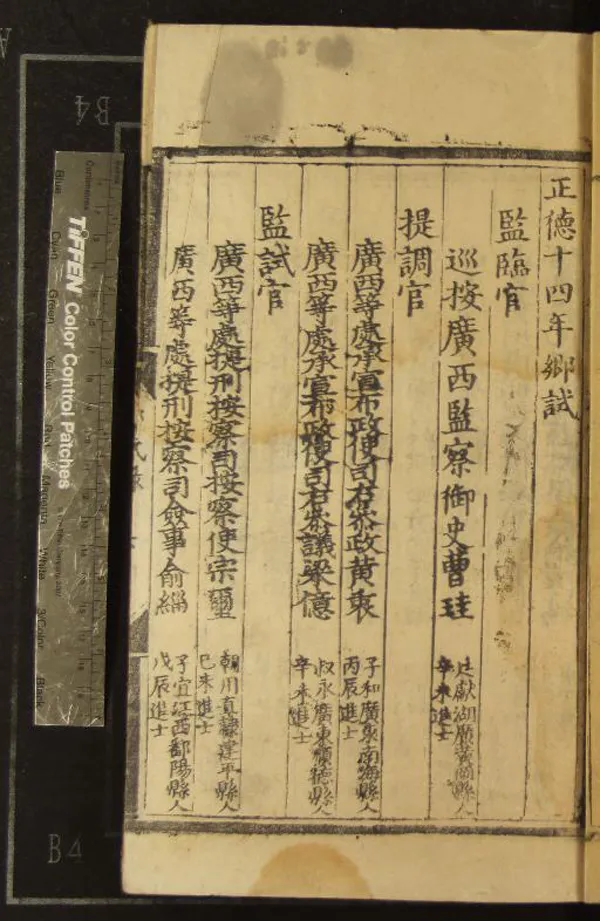 正德十四年鄉試
監臨官
巡按廣西監察御史曹珪
廷獻湖廣黃岡縣人
辛未進士
提調官
廣西等處承宣布政使司右叅政黃衷
子和廣東南海縣人
丙辰進士
廣西等處承宣布政使司右叅議梁億
叔永廣東順德縣人
辛未進士
監試官
廣西等處提刑按察司按察使宗璽
朝用直隸建平縣人
己未進士
廣西等處提刑按察司僉事俞緇
子宜江西鄱陽縣人
戊辰進士
TIFFEN Color Control Patches
Blue
Cyan
Green
Yellow
Red
Magenta
White
3/Color
Black
Centimetres
B4
B4
A